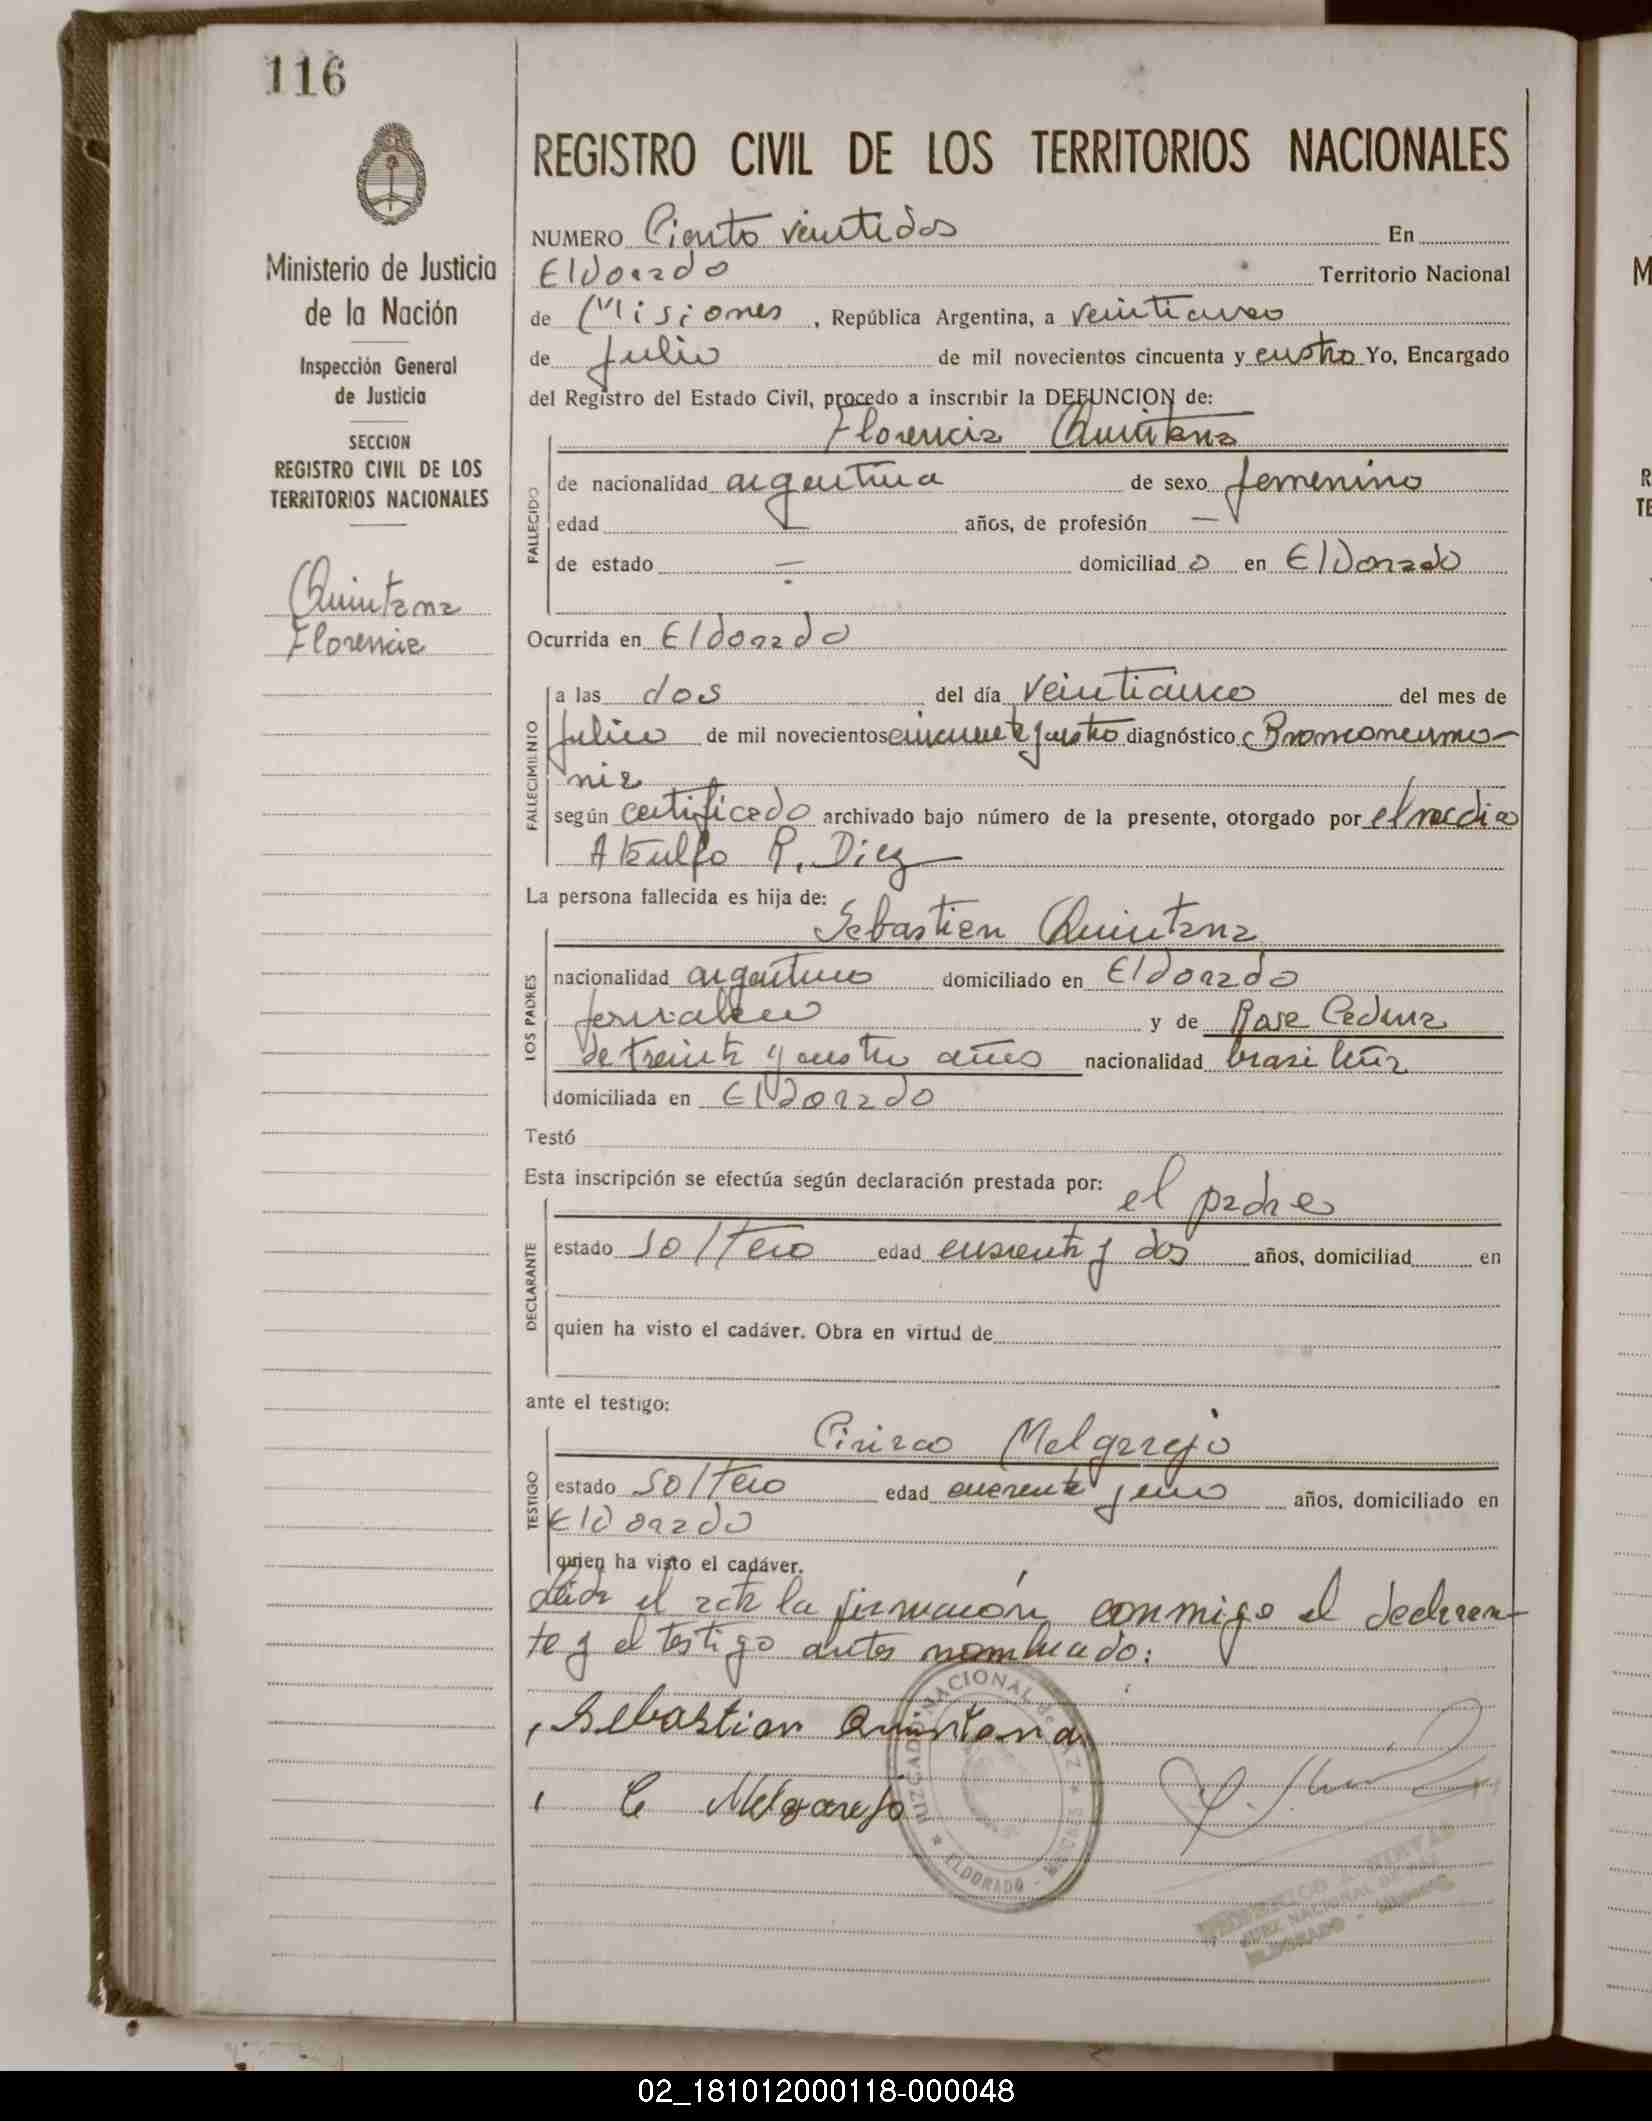 116
Ministerio de Justicia
de la Nación
Inspección General
de Justicia
SECCION
REGISTRO CIVIL DE LOS
TERRITORIOS NACIONALES
Quintana
Florencia
REGISTRO CIVIL DE LOS TERRITORIOS NACIONALES
NUMERO Ciento veintidos En
Eldorado Territorio Nacional
de Misiones, República Argentina, a veinticinco
de Julio de mil novecientos cincuenta y cuatro Yo, Encargado
del Registro del Estado Civil, procedo a inscribir la DEFUNCION de:
Florencia Quintana
FALLECIDO
de nacionalidad argentina de sexo femenino
edad — años, de profesión —
de estado — domiciliad o en ElDorado
Ocurrida en Eldorado
FALLECIMIENTO
a las dos del día veinticinco del mes de
Julio de mil novecientos cincuenta y cuatro diagnóstico Bronconeumo-
nia
según certificado archivado bajo número de la presente, otorgado por el medico
Ataulfo R. Diez
La persona fallecida es hija de:
Sebastian Quintana
LOS PADRES
nacionalidad argentino domiciliado en Eldorado
y de Rosa
de treinta y cuatro años nacionalidad brasileña
domiciliada en ElDorado
Testó
Esta inscripción se efectúa según declaración prestada por:
el padre
DECLARANTE
estado soltero edad cuarenta y dos años, domiciliad en
quien ha visto el cadáver. Obra en virtud de
ante el testigo:
Ciriaco Melgarejo
TESTIGO
estado soltero edad cuarenta y uno años, domiciliado en
Eldorado
quien ha visto el cadáver.
el acta la conmigo el declaran-
te y el testigo antes nombrado:
Sebastian Quintana
C Melgarejo
JUZGADO NACIONAL de PAZ
ELDORADO - MISIONES
JUEZ NACIONAL DE PAZ
ELDORADO - MISIONES
02_181012000118-000048